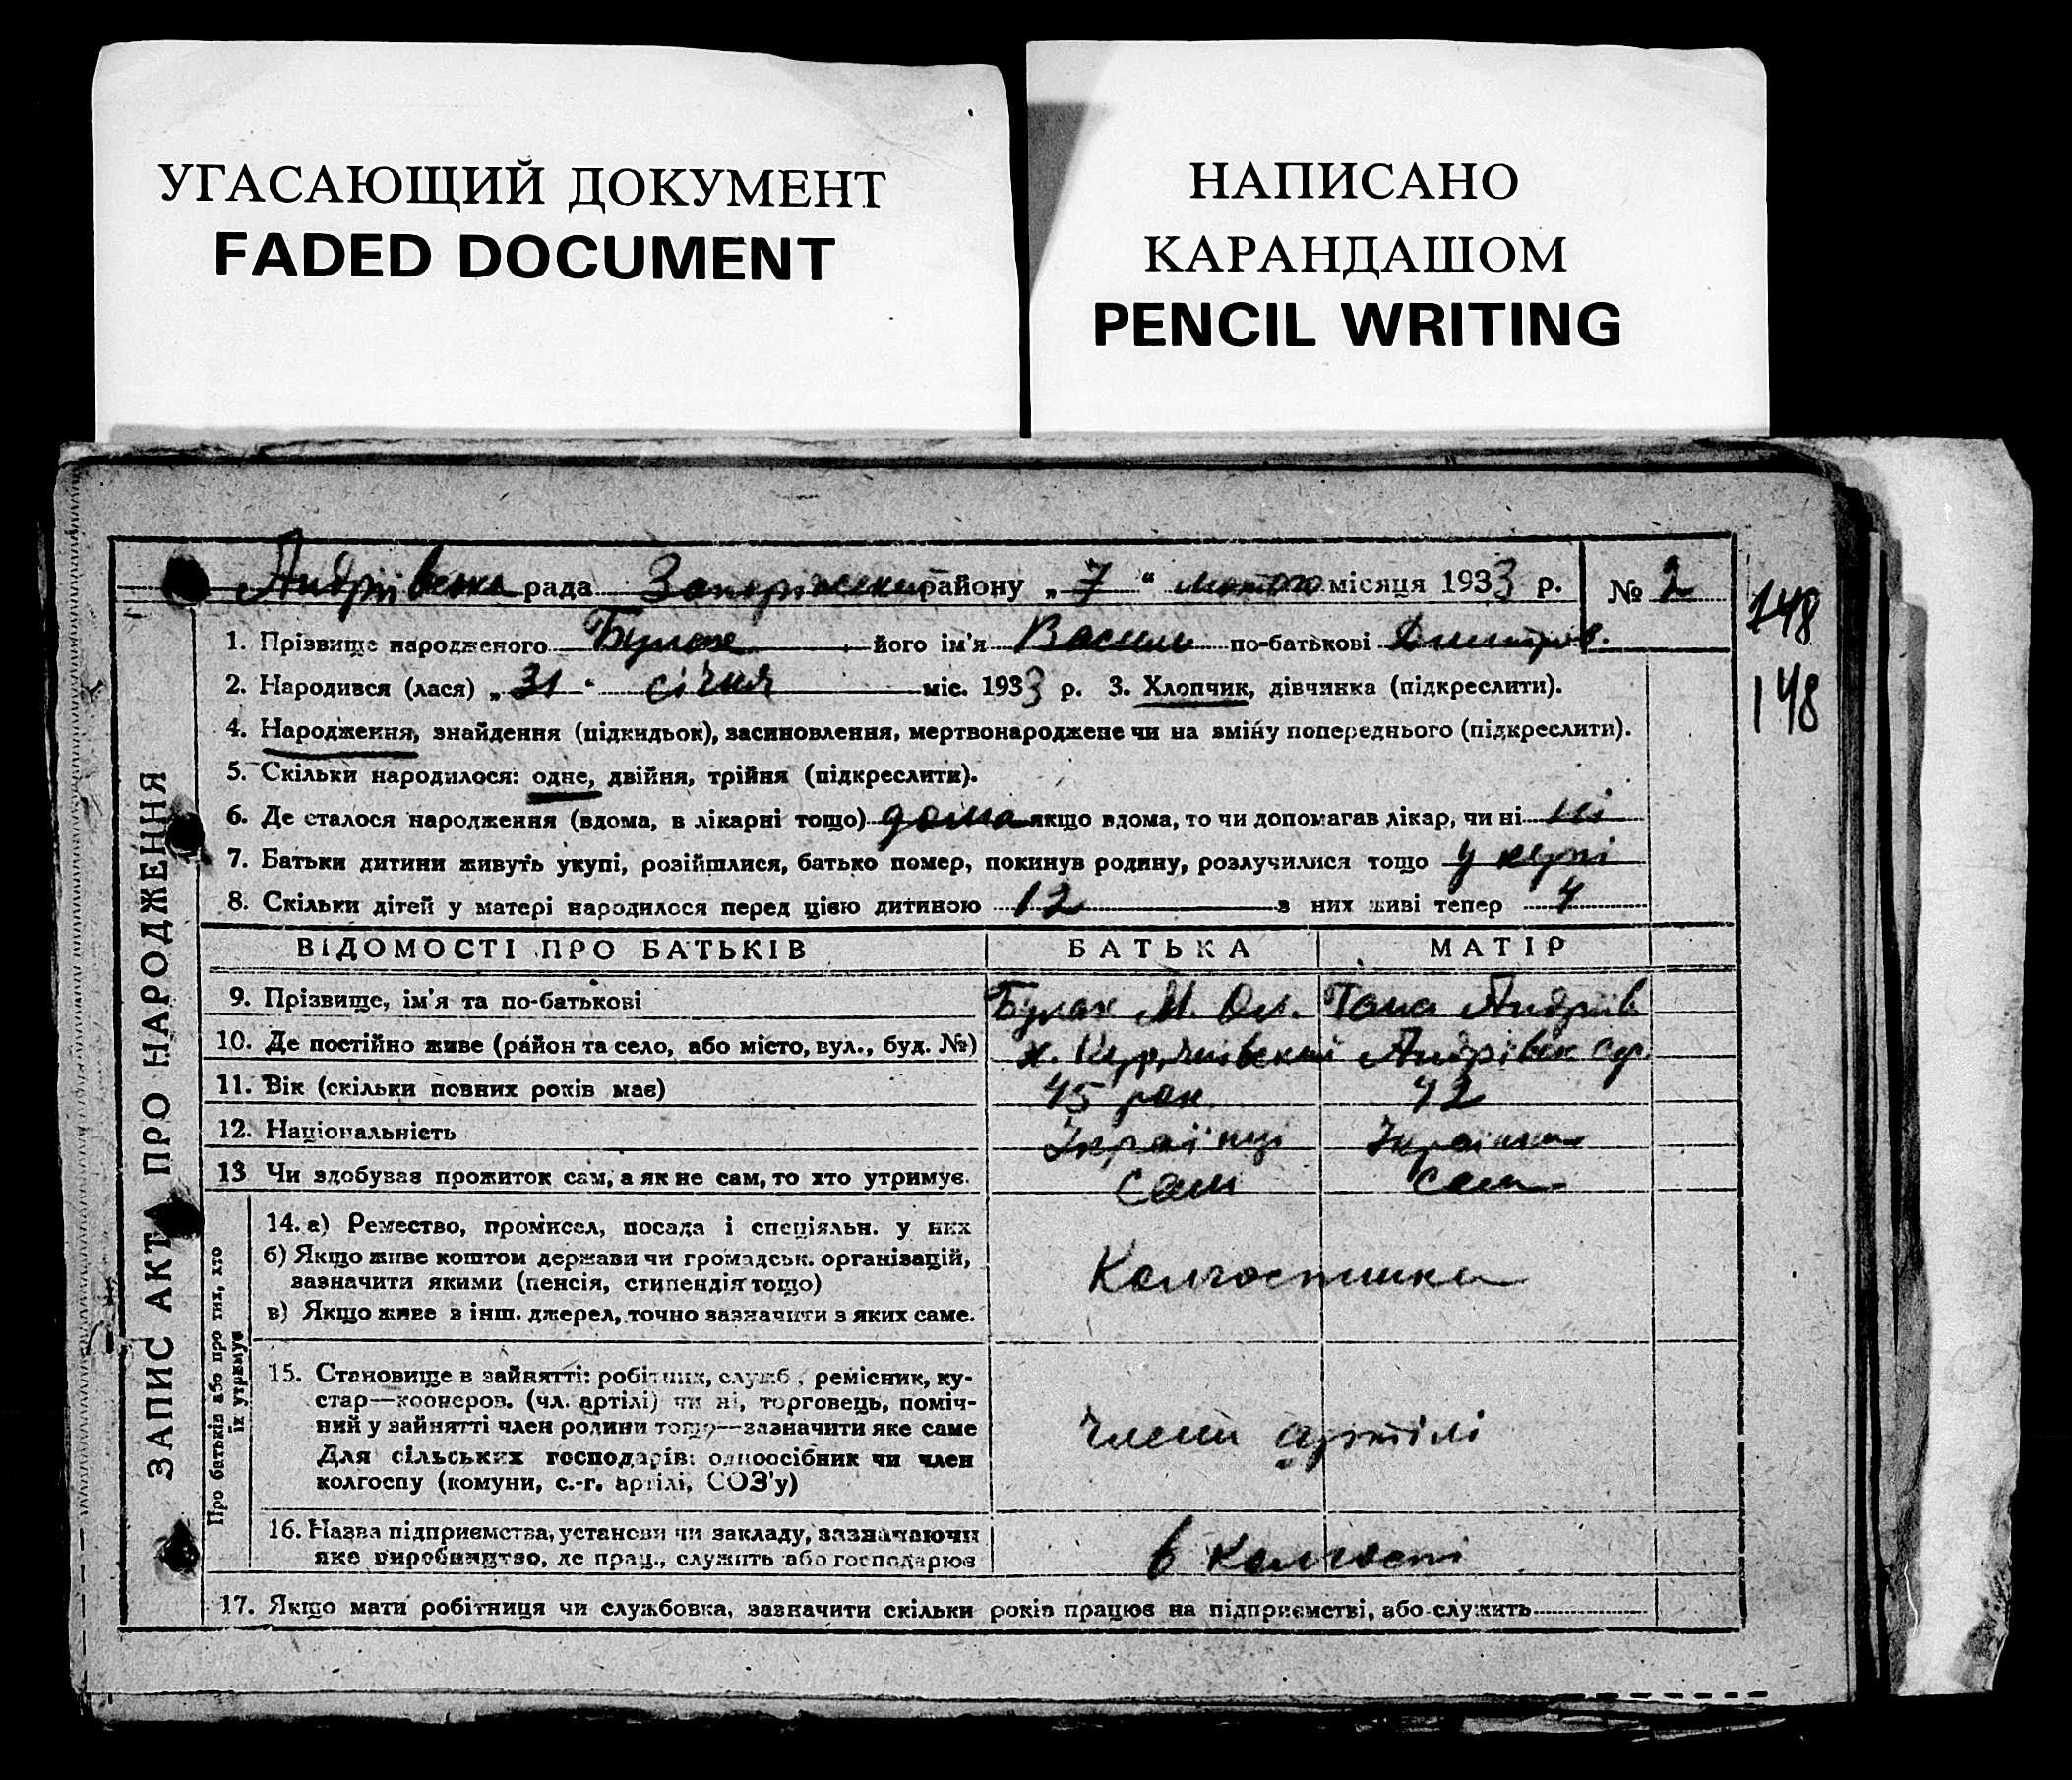 УГАСАЮЩИЙ ДОКУМЕНТ
FADED DOCUMENT
НАПИСАНО
КАРАНДАШОМ
PENCIL WRITING
Андріївська рада Запоріжськ району „7“ лютого місяця 1933 р. № 2
148
148
ЗАПИС АКТА ПРО НАРОДЖЕННЯ
1. Прізвище народженого Булах його ім'я Василь по-батькові Дмитров.
2. Народився (лася) „31“ січня міс. 1933 р. 3. Хлопчик, дівчинка (підкреслити).
4. Народження, знайдення (підкидьок), засиновлення, мертвонароджене чи на зміну попереднього (підкреслити).
5. Скільки народилося: одне, двійня, трійня (підкреслити).
6. Де сталося народження (вдома, в лікарні тощо) дома якщо вдома, то чи допомагав лікар, чи ні ні
7. Батьки дитини живуть укупі, розійшлися, батько помер, покинув родину, розлучилися тощо укупі
8. Скільки дітей у матері народилося перед цією дитиною 12 з них живі тепер 4
ВІДОМОСТІ ПРО БАТЬКІВ БАТЬКА МАТІР
9. Прізвище, ім'я та по-батькові Булах М. Ом. Гана Андріїв
10. Де постійно живе (район та село, або місто, вул., буд. №) х. Андрівск с/р.
11. Вік (скільки повних років має) 45 рок 42
12. Національність Українці Українка
13 Чи здобував прожиток сам, а як не сам, то хто утримує. сам сама
Про батьків або про тих, хто
їх утримує
14. а) Ремество, промисел, посада і спеціяльн. у них
б) Якщо живе коштом держави чи громадськ. організацій,
зазначити якими (пенсія, стипендія тощо)
в) Якщо живе з інш. джерел, точно зазначити з яких саме.
Колгоспники
15. Становище в зайнятті: робітник, служб., ремісник, ку-
стар—кооперов. (чл. артілі) чи ні, торговець, поміч-
ний у зайнятті член родини тощо—зазначити яке саме
Для сільських господарів: одноосібник чи член
колгоспу (комуни, с.-г. артілі, СОЗ'у)
члени артілі
16. Назва підприємства, установи чи закладу, зазначаючи
яке виробництво, де прац., служить або господарює
в колгоспі
17. Якщо мати робітниця чи службовка, зазначити скільки років працює на підприємстві, або служить